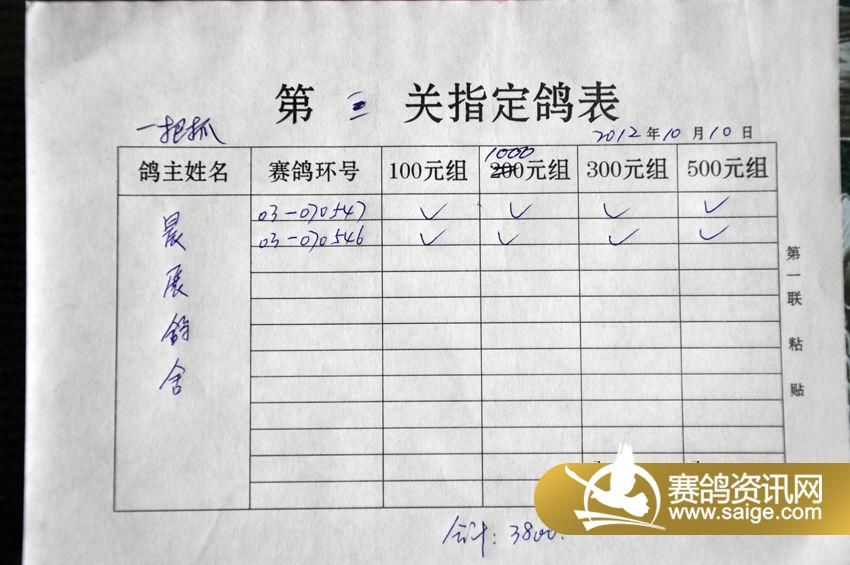 第 三 关指定鸽表
一把抓
2012 年 10 月 10 日
鸽主姓名 赛鸽环号 100元组 1000元组 300元组 500元组
03-070547 ✓ ✓ ✓ ✓
03-070546 ✓ ✓ ✓ ✓
晨展鸽舍
第一联 粘贴
合计: 3800.
赛鸽资讯网
www.saige.com